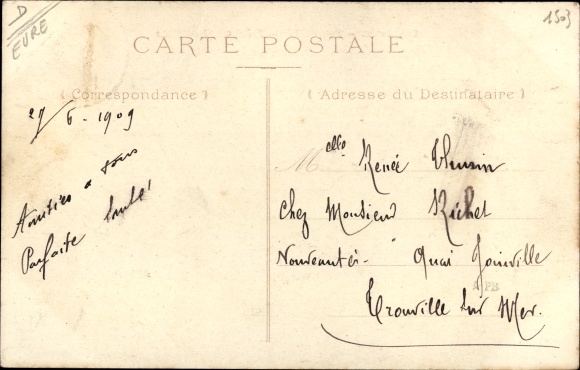 D
EURE
1503
CARTE POSTALE
(Correspondance)
(Adresse du Destinataire)
27/6-1909
Amitiés à tous
Parfaite
Melle Renée
Chez Monsieur Richet
Nouveautés - Quai Joinville
Trouville sur Mer.